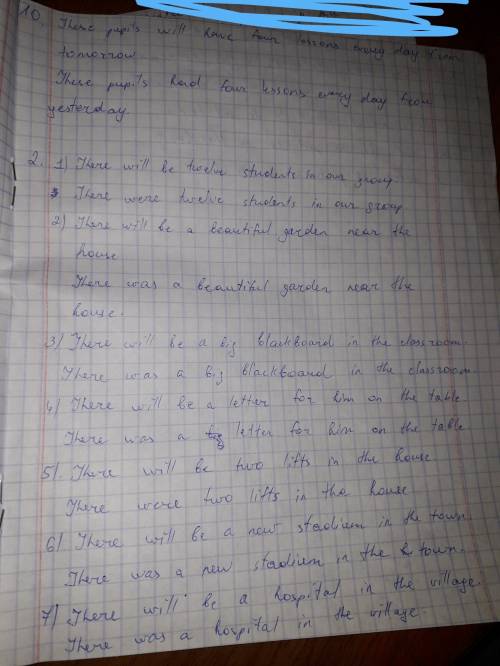 10. These pupils will have four lessons every day from
tomorrow
These pupils had four lessons every day from
yesterday.
2. 1) There will be twelve students in our group.
There were twelve students in our group
2) There will be a beautiful garden near the
house
There was a beautiful garden near the
house.
3) There will be a big blackboard in the classroom.
There was a big blackboard in the classroom.
4) There will be a letter for him on the table.
There was a letter for him on the table
5) There will be two lifts in the house
There were two lifts in the house
6) There will be a new stadium in the town.
There was a new stadium in the town.
7) There will be a hospital in the village.
There was a hospital in the village.